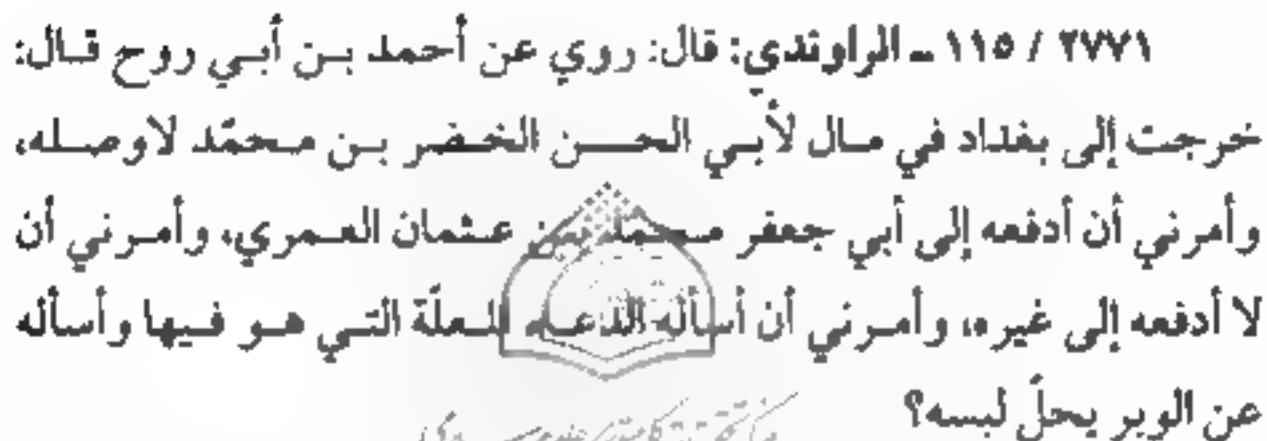 ٢٧٧١ / ١١٥ ـ الراوندي: قال: روي عن أحمد بن أبي روح قال:
خرجت إلى بغداد في مال لأبي الحسن الخضر بن محمّد لاوصله،
وأمرني أن أدفعه إلى أبي جعفر محمّد بن عثمان العمري، وأمرني أن
لا أدفعه إلى غيره، وأمرني أن أسأله الدعاء للعلّة التي هو فيها وأسأله
عن الوبر يحلّ لبسه؟